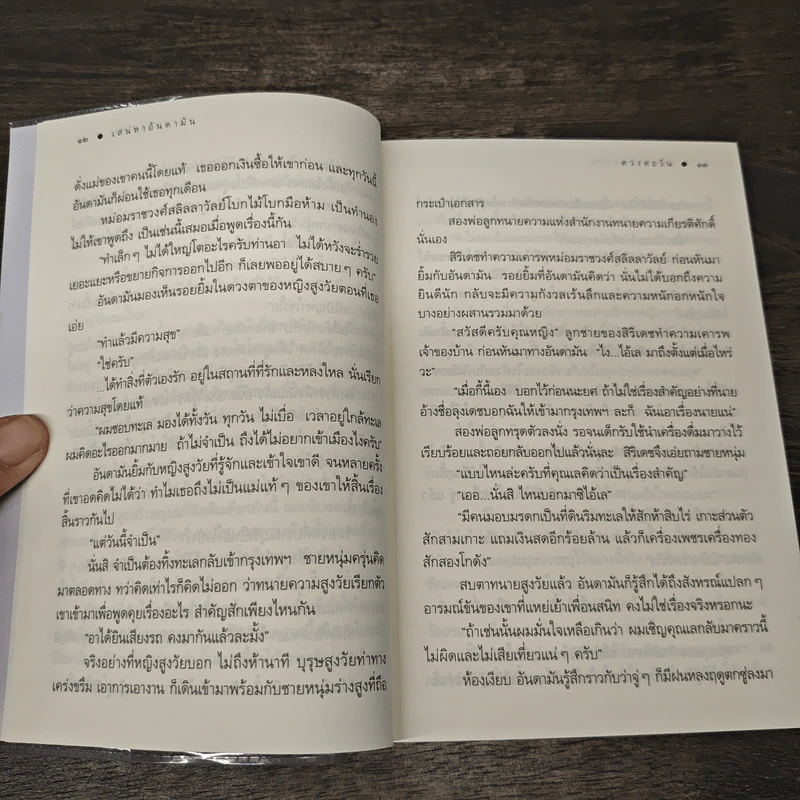 ๑๒ ● เสน่หาอันดามัน
ตั่งแม่ของเขาคนนี้โดยแท้ เธอออกเงินซื้อให้เขาก่อน และทุกวันนี้
อันดามันก็ผ่อนใช้เธอทุกเดือน
หม่อมราชวงศ์สลิลลาวัลย์โบกไม้โบกมือห้าม เป็นทำนอง
ไม่ให้เขาพูดถึง เป็นเช่นนี้เสมอเมื่อพูดเรื่องนี้กัน
“ทำเล็กๆ ไม่ได้ใหญ่โตอะไรครับท่านอา ไม่ได้หวังจะร่ำรวย
เยอะแยะหรือขยายกิจการออกไปอีก ก็เลยพออยู่ได้สบายๆ ครับ”
อันดามันมองเห็นรอยยิ้มในดวงตาของหญิงสูงวัยตอนที่เธอ
เอ่ย
“ทำแล้วมีความสุข”
“ใช่ครับ”
...ได้ทำสิ่งที่ตัวเองรัก อยู่ในสถานที่ที่รักและหลงใหล นั่นเรียก
ว่าความสุขโดยแท้
“ผมชอบทะเล มองได้ทั้งวัน ทุกวัน ไม่เบื่อ เวลาอยู่ใกล้ทะเล
ผมคิดอะไรออกมากมาย ถ้าไม่จำเป็น ถึงได้ไม่อยากเข้าเมืองไงครับ”
อันดามันยิ้มกับหญิงสูงวัยที่รู้จักและเข้าใจเขาดี จนหลายครั้ง
ที่เขาอดคิดไม่ได้ว่า ทำไมเธอถึงไม่เป็นแม่แท้ๆ ของเขาให้สิ้นเรื่อง
สิ้นราวกันไป
“แต่วันนี้จำเป็น”
นั่นสิ จำเป็นต้องทิ้งทะเลกลับเข้ากรุงเทพฯ ชายหนุ่มครุ่นคิด
มาตลอดทาง ทว่าคิดเท่าไรก็คิดไม่ออก ว่าทนายความสูงวัยเรียกตัว
เขาเข้ามาเพื่อพูดคุยเรื่องอะไร สำคัญสักเพียงไหนกัน
“อาได้ยินเสียงรถ คงมากันแล้วละมั้ง”
จริงอย่างที่หญิงสูงวัยบอก ไม่ถึงห้านาที บุรุษสูงวัยท่าทาง
เคร่งขรึม เอาการเอางาน ก็เดินเข้ามาพร้อมกับชายหนุ่มร่างสูงที่ถือ
ดวงตะวัน ● ๑๓
กระเป๋าเอกสาร
สองพ่อลูกทนายความแห่งสำนักงานทนายความเกียรติศักดิ์
นั่นเอง
สิริเดชทำความเคารพหม่อมราชวงศ์สลิลลาวัลย์ ก่อนหันมา
ยิ้มกับอันดามัน รอยยิ้มที่อันดามันคิดว่า นั่นไม่ได้บอกถึงความ
ยินดีนัก กลับจะมีความกังวลเร้นลึกและความหนักอกหนักใจ
บางอย่างผสานรวมมาด้วย
“สวัสดีครับคุณหญิง” ลูกชายของสิริเดชทำความเคารพ
เจ้าของบ้าน ก่อนหันมาทางอันดามัน “ไง...ไอ้เล มาถึงตั้งแต่เมื่อไหร่
วะ”
“เมื่อกี้นี้เอง บอกไว้ก่อนนะยศ ถ้าไม่ใช่เรื่องสำคัญอย่างที่นาย
อ้างชื่อลุงเดชบอกฉันให้เข้ามากรุงเทพฯ ละก็ ฉันเอาเรื่องนายแน่”
สองพ่อลูกทรุดตัวลงนั่ง รอจนเด็กรับใช้นำเครื่องดื่มมาวางไว้
เรียบร้อยและถอยกลับออกไปแล้วนั่นละ สิริเดชจึงเอ่ยถามชายหนุ่ม
“แบบไหนล่ะครับที่คุณเลคิดว่าเป็นเรื่องสำคัญ”
“เออ...นั่นสิ ไหนบอกมาซิไอ้เล”
“มีคนมอบมรดกเป็นที่ดินริมทะเลให้สักห้าสิบไร่ เกาะส่วนตัว
สักสามเกาะ แถมเงินสดอีกร้อยล้าน แล้วก็เครื่องเพชรเครื่องทอง
สักสองโกดัง”
สบตาทนายสูงวัยแล้ว อันดามันก็รู้สึกได้ถึงสังหรณ์แปลกๆ
อารมณ์ขันของเขาที่แหย่เย้าเพื่อนสนิท คงไม่ใช่เรื่องจริงหรอกนะ
“ถ้าเช่นนั้นผมมั่นใจเหลือเกินว่า ผมเชิญคุณเลกลับมาคราวนี้
ไม่ผิดและไม่เสียเที่ยวแน่ๆ ครับ”
ห้องเงียบ อันดามันรู้สึกราวกับว่าจู่ๆ ก็มีฝนหลงฤดูตกซู่ลงมา